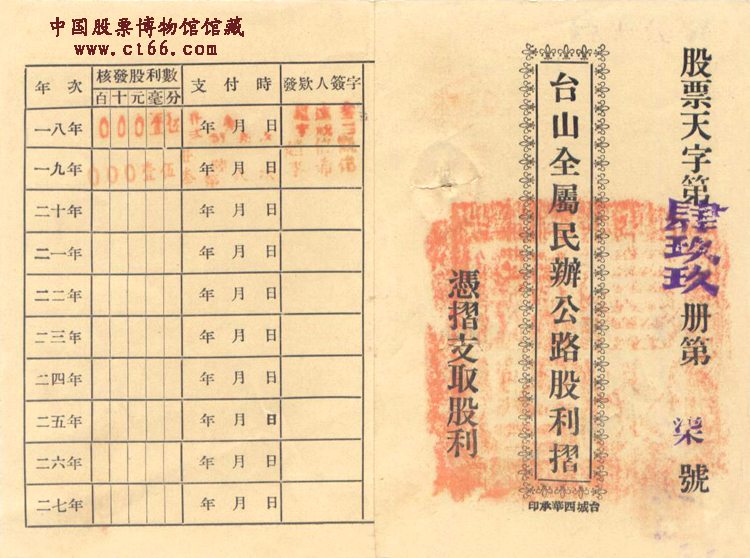 中国股票博物馆馆藏
www.ct66.com
股票天字第肆玖玖册第 柒 號
台山全屬民辦公路股利摺
憑摺支取股利
台城西華承印
年次 核發股利數 支付時 發欵人簽字
百十元毫分
一八年 000壹伍 年月日
一九年 000壹伍 年月日
二十年 年月日
二一年 年月日
二二年 年月日
二三年 年月日
二四年 年月日
二五年 年月日
二六年 年月日
二七年 年月日